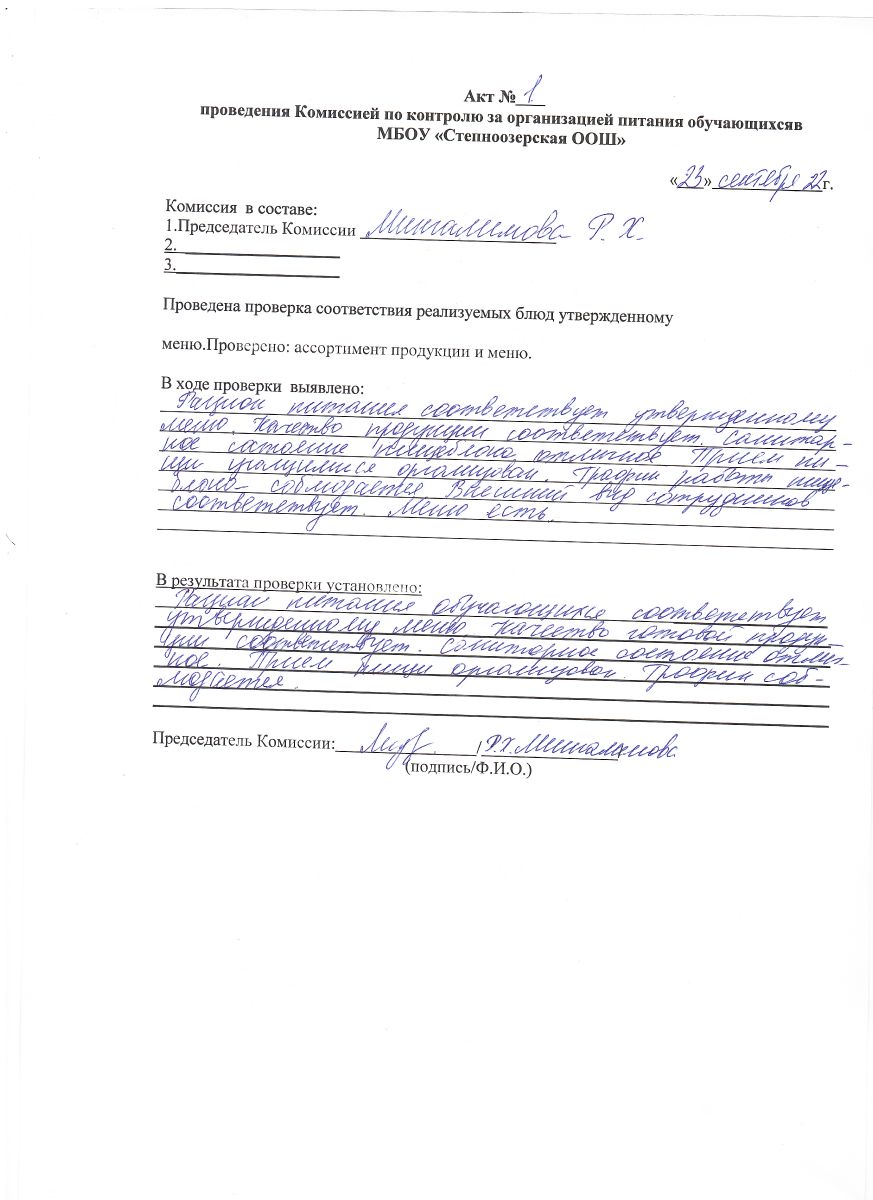 Акт № 1
проведения Комиссией по контролю за организацией питания обучающихсяв
МБОУ «Степноозерская ООШ»
«23» сентября 22г.
Комиссия в составе:
1.Председатель Комиссии Мингалимова Р. Х.
2.
3.
Проведена проверка соответствия реализуемых блюд утвержденному
меню.Проверено: ассортимент продукции и меню.
В ходе проверки выявлено:
Рацион питания соответствует утвержденному
меню. Качество продукции соответствует. Санитар-
ное состояние пищеблока отличное Прием пи-
щи учащимися организован. График работы пище-
блока- соблюдается Внешний вид сотрудников
соответствует. Меню есть.
В результата проверки установлено:
Рацион питания обучающихся соответствует
утвержденному меню Качество готовой продук-
ции соответствует. Санитарное состояние отлич-
ное. Прием пищи организован. График соб-
людается.
Председатель Комиссии: / Р.Х.Мингалимова
(подпись/Ф.И.О.)